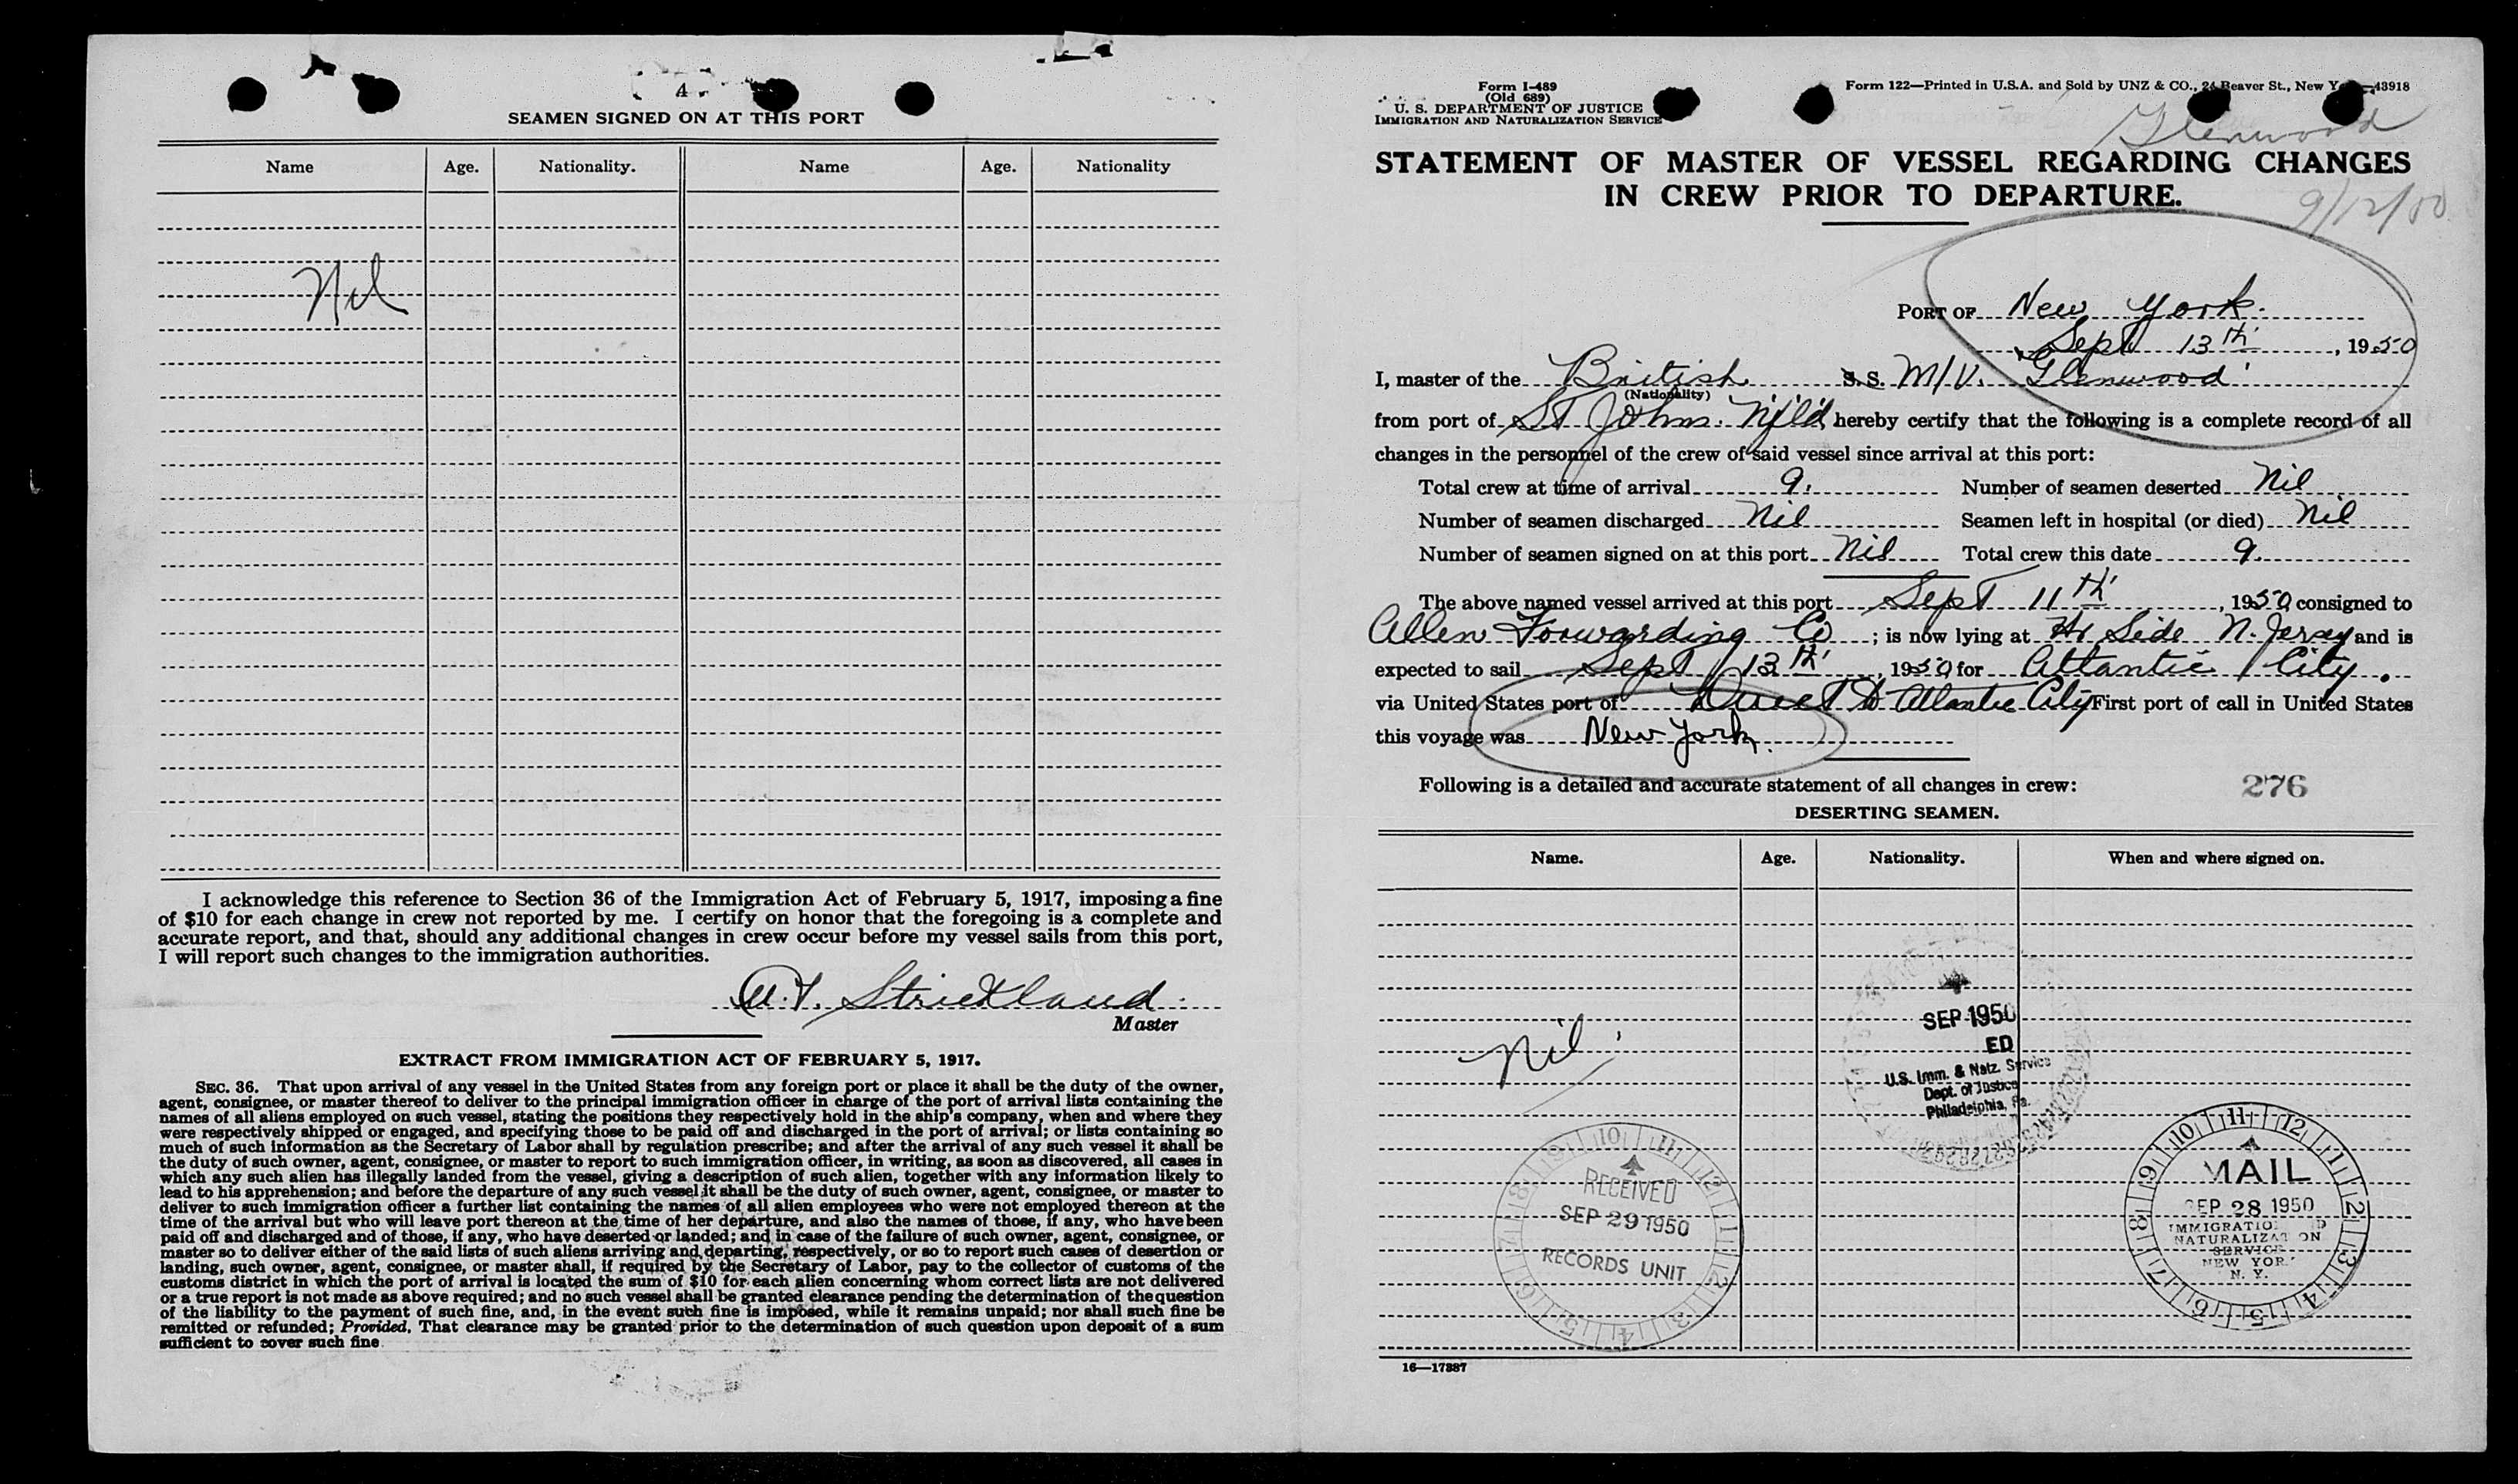 4
SEAMEN SIGNED ON AT THIS PORT
Name Age. Nationality. Name Age. Nationality
Nil
I acknowledge this reference to Section 36 of the Immigration Act of February 5, 1917, imposing a fine
of $10 for each change in crew not reported by me. I certify on honor that the foregoing is a complete and
accurate report, and that, should any additional changes in crew occur before my vessel sails from this port,
I will report such changes to the immigration authorities.
Strickland
Master
EXTRACT FROM IMMIGRATION ACT OF FEBRUARY 5, 1917.
SEC. 36. That upon arrival of any vessel in the United States from any foreign port or place it shall be the duty of the owner,
agent, consignee, or master thereof to deliver to the principal immigration officer in charge of the port of arrival lists containing the
names of all aliens employed on such vessel, stating the positions they respectively hold in the ship's company, when and where they
were respectively shipped or engaged, and specifying those to be paid off and discharged in the port of arrival; or lists containing so
much of such information as the Secretary of Labor shall by regulation prescribe; and after the arrival of any such vessel it shall be
the duty of such owner, agent, consignee, or master to report to such immigration officer, in writing, as soon as discovered, all cases in
which any such alien has illegally landed from the vessel, giving a description of such alien, together with any information likely to
lead to his apprehension; and before the departure of any such vessel it shall be the duty of such owner, agent, consignee, or master to
deliver to such immigration officer a further list containing the names of all alien employees who were not employed thereon at the
time of the arrival but who will leave port thereon at the time of her departure, and also the names of those, if any, who have been
paid off and discharged and of those, if any, who have deserted or landed; and in case of the failure of such owner, agent, consignee, or
master so to deliver either of the said lists of such aliens arriving and departing, respectively, or so to report such cases of desertion or
landing, such owner, agent, consignee, or master shall, if required by the Secretary of Labor, pay to the collector of customs of the
customs district in which the port of arrival is located the sum of $10 for each alien concerning whom correct lists are not delivered
or a true report is not made as above required; and no such vessel shall be granted clearance pending the determination of the question
of the liability to the payment of such fine, and, in the event such fine is imposed, while it remains unpaid; nor shall such fine be
remitted or refunded; Provided, That clearance may be granted prior to the determination of such question upon deposit of a sum
sufficient to cover such fine
Form I-489
(Old 689)
U. S. DEPARTMENT OF JUSTICE
IMMIGRATION AND NATURALIZATION SERVICE
Form 122—Printed in U.S.A. and Sold by UNZ & CO., 24 Beaver St., New Y —43918
Glenwood
STATEMENT OF MASTER OF VESSEL REGARDING CHANGES
IN CREW PRIOR TO DEPARTURE.
9/12/50
PORT OF New York.
Sept 13th, 1950
I, master of the British S. S. M/V. Glenwood
(Nationality)
from port of St Johns. Nfld hereby certify that the following is a complete record of all
changes in the personnel of the crew of said vessel since arrival at this port:
Total crew at time of arrival 9. Number of seamen deserted Nil
Number of seamen discharged Nil Seamen left in hospital (or died) Nil
Number of seamen signed on at this port Nil Total crew this date 9.
The above named vessel arrived at this port Sept 11th, 1950 consigned to
Allen Forwarding Co; is now lying at Side N. Jersey and is
expected to sail Sept 13th, 1950 for Atlantic City.
via United States port of Direct to Atlantic City First port of call in United States
this voyage was New York.
Following is a detailed and accurate statement of all changes in crew:
276
DESERTING SEAMEN.
Name. Age. Nationality. When and where signed on.
Nil
SEP 1950
ED
U.S. Imm. & Natz. Service
Dept. of Justice
Philadelphia, Pa.
10 11 12 1 2 3 4 5 6 7 8 9
RECEIVED
SEP 29 1950
RECORDS UNIT
11 12 1 2 3 4 5 6 7 8 9 10
MAIL
SEP 28 1950
IMMIGRATION
NATURALIZATION
SERVICE
NEW YORK
N. Y.
16—17887